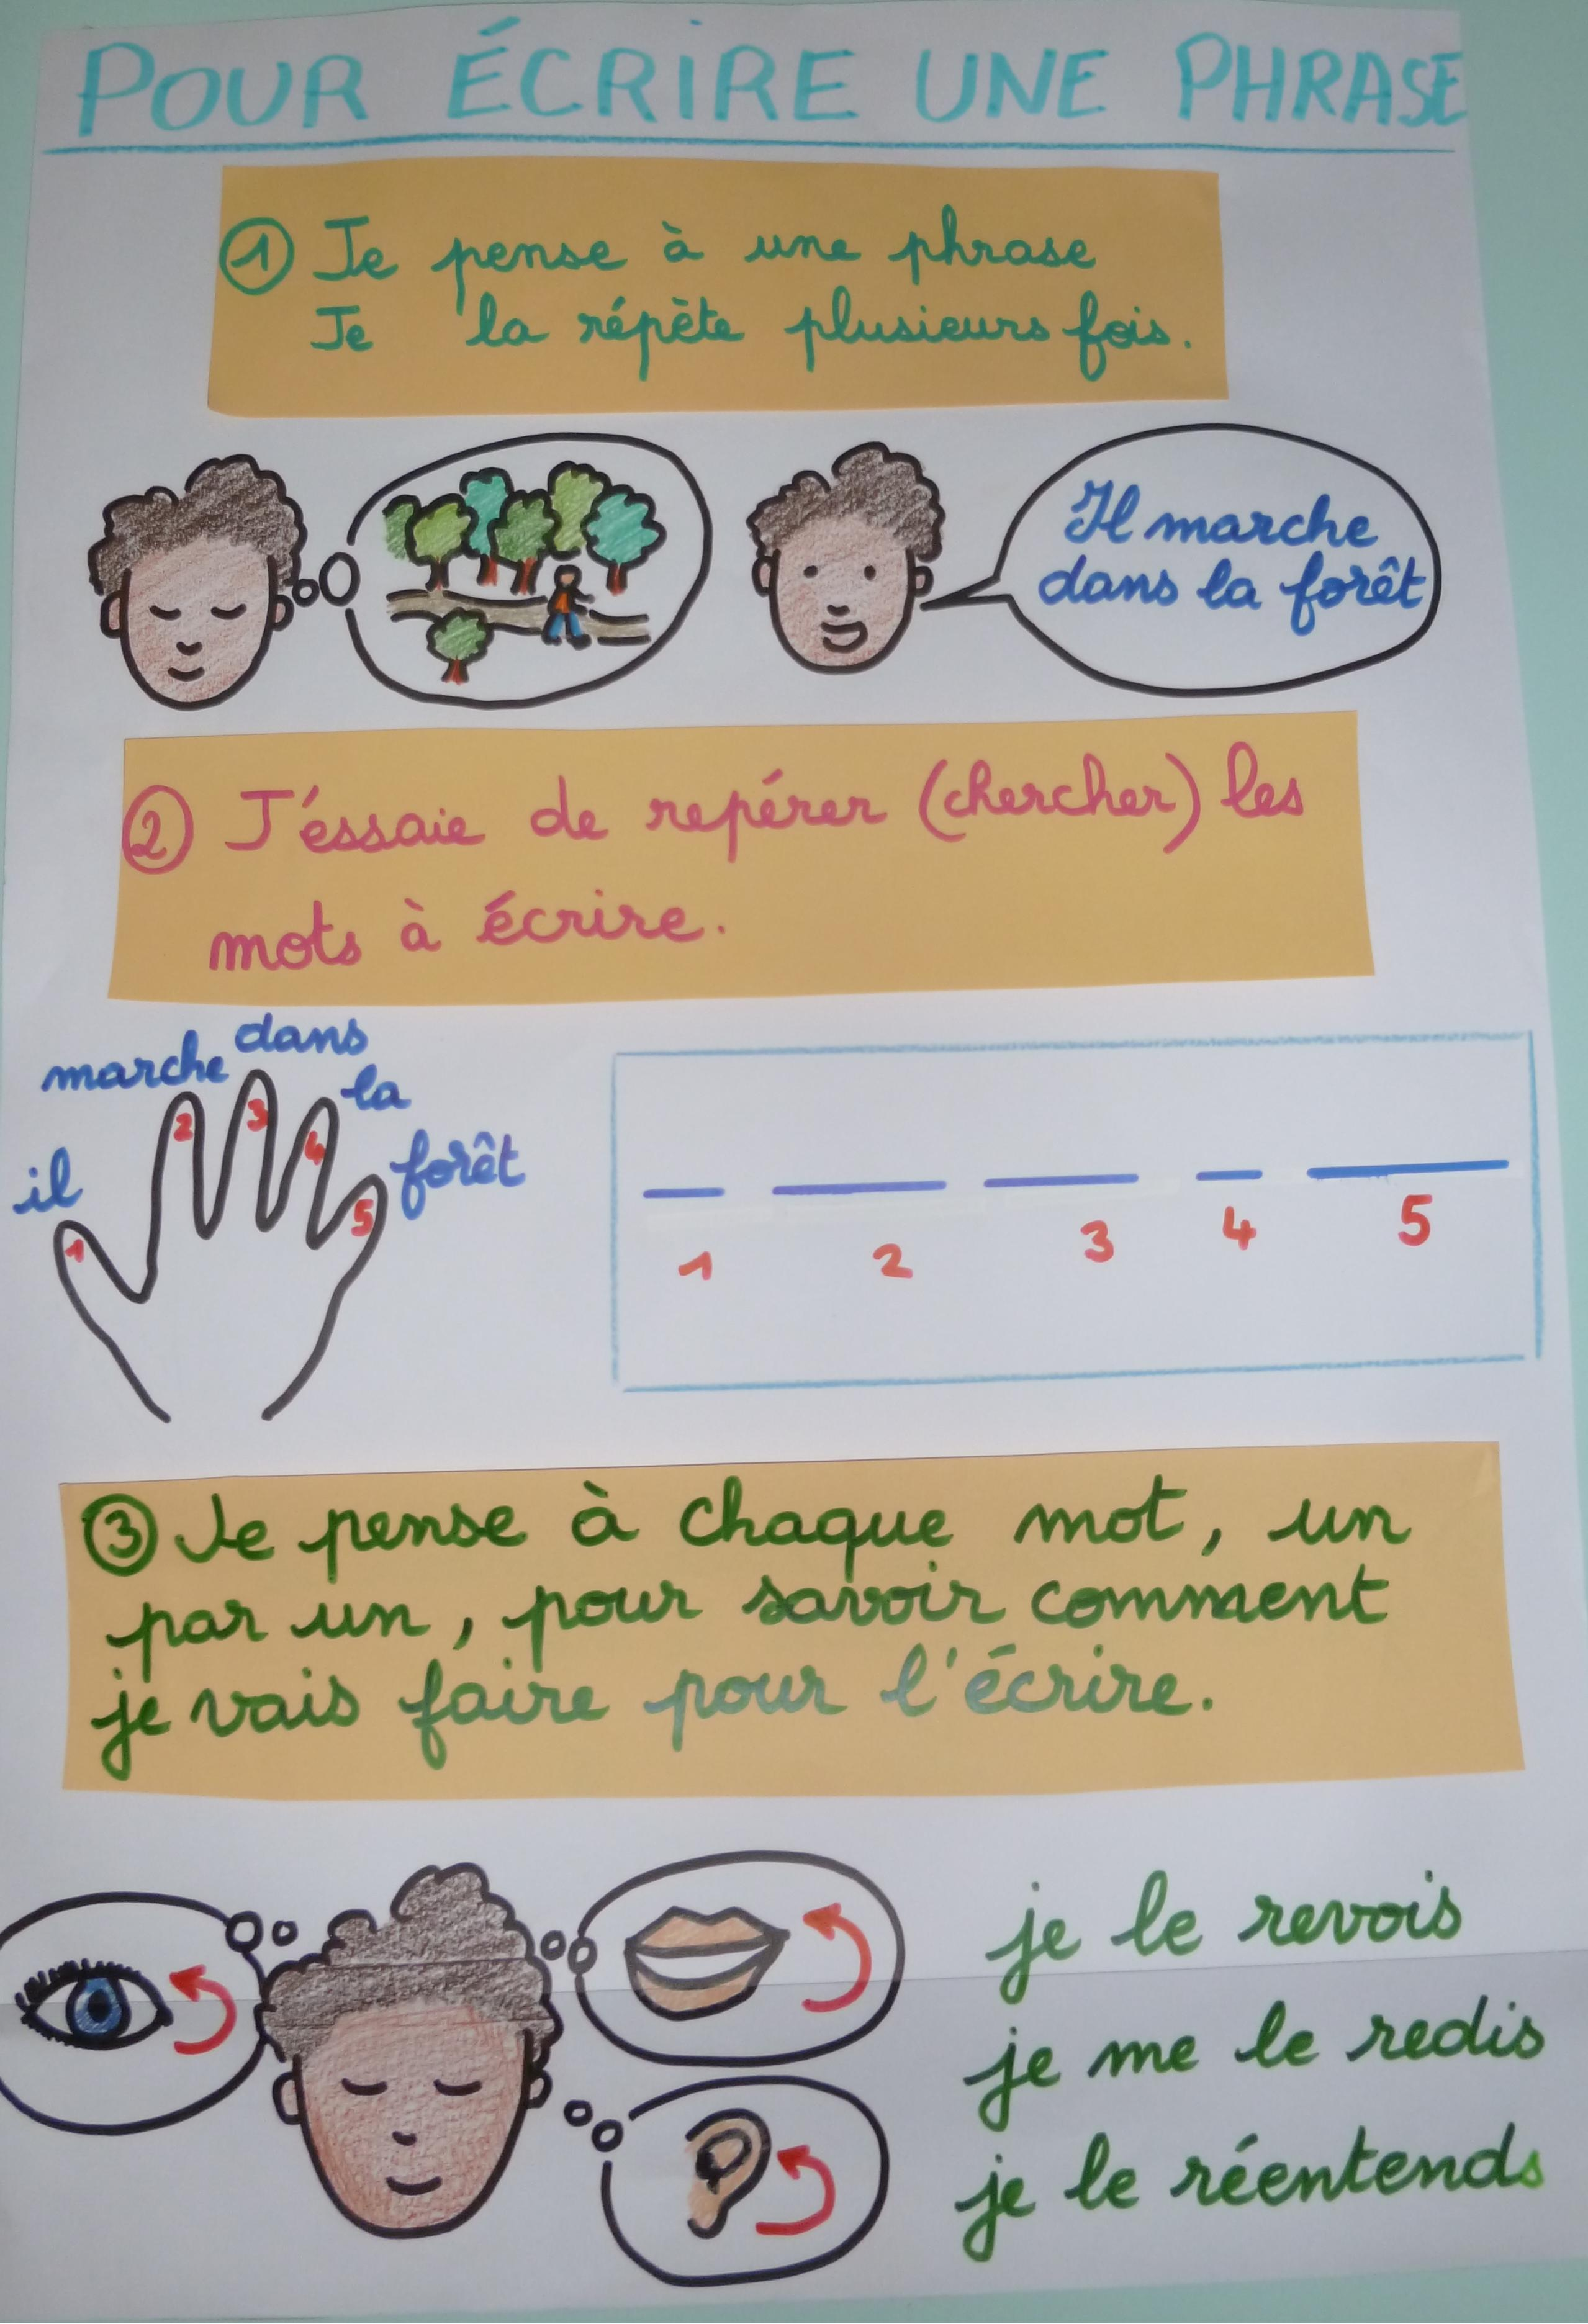 POUR ÉCRIRE UNE PHRASE
① Je pense à une phrase
Je la répète plusieurs fois.
Il marche
dans la forêt
② J'éssaie de repérer (chercher) les
mots à écrire.
il marche dans la forêt
1 2 3 4 5
1 2 3 4 5
③ Je pense à chaque mot, un
par un, pour savoir comment
je vais faire pour l'écrire.
je le revois
je me le redis
je le réentends